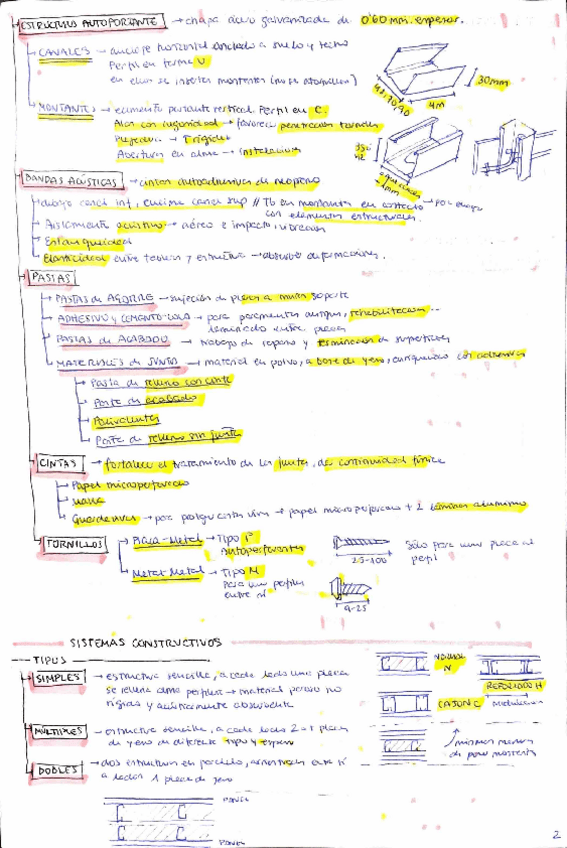 ESTRUCTURA AUTOPORTANTE → chapa acero galvanizado de 0'60 mm. espesor.
CANALES → anclaje horizontal anclado a suelo y techo
Perfil en forma U
en ellos se insertan montantes (no se atornillan)
30mm
48,70,90
4M
MONTANTES → elemento portante vertical. Perfil en C.
Alas con rugosidad → favorece penetración tornillos
→ rigidez
Abertura en alma → instalaciones
BANDAS ACÚSTICAS → cintas autoadhesivas de neopreno
debajo canal inf, encima canal sup // Tb en montantes en contacto
con elementos estructurales.
Aislamiento acústico → aéreo e impacto, vibración
Estanqueidad
Elasticidad entre tabique y estructura → absorber deformaciones.
PASTAS
PASTAS de AGARRE → sujeción de placas a muro soporte
ADHESIVO y CEMENTO-COLA → para paramentos antiguos, rehabilitación...
laminado entre placas
PASTAS de ACABADO → trabajo de reparo y terminación de superficies
MATERIALES de JUNTAS → material en polvo, a base de yeso, enriquecido con adhesivos
Pasta de relleno con cinta
Pasta de acabado
Polivalentes
Pasta de relleno sin junta
CINTAS → fortalece el tratamiento de las juntas, da continuidad física
Papel microperforado
Malla
Guardavivos → para proteger cantos vivos → papel microperforado + 2 láminas aluminio
TORNILLOS
Placa-Metal → Tipo P
Autoperforantes
25-100
Sólo para unir placa al
perfil
Metal-Metal → Tipo M
Para unir perfiles
entre sí
9-25
SISTEMAS CONSTRUCTIVOS
TIPOS
SIMPLES → estructura sencilla, a cada lado una placa
se rellena alma perfiles → material poroso no
rígido y acústicamente absorbente
NORMAL
N
REFORZADO H
CAJÓN C
Modulación
MÚLTIPLES → estructura sencilla, a cada lado 2 o + placas
de yeso de diferente tipo y espesor
DOBLES → dos estructuras en paralelo, arriostradas entre sí
a lados 1 placa de yeso
PANEL
PANEL
2